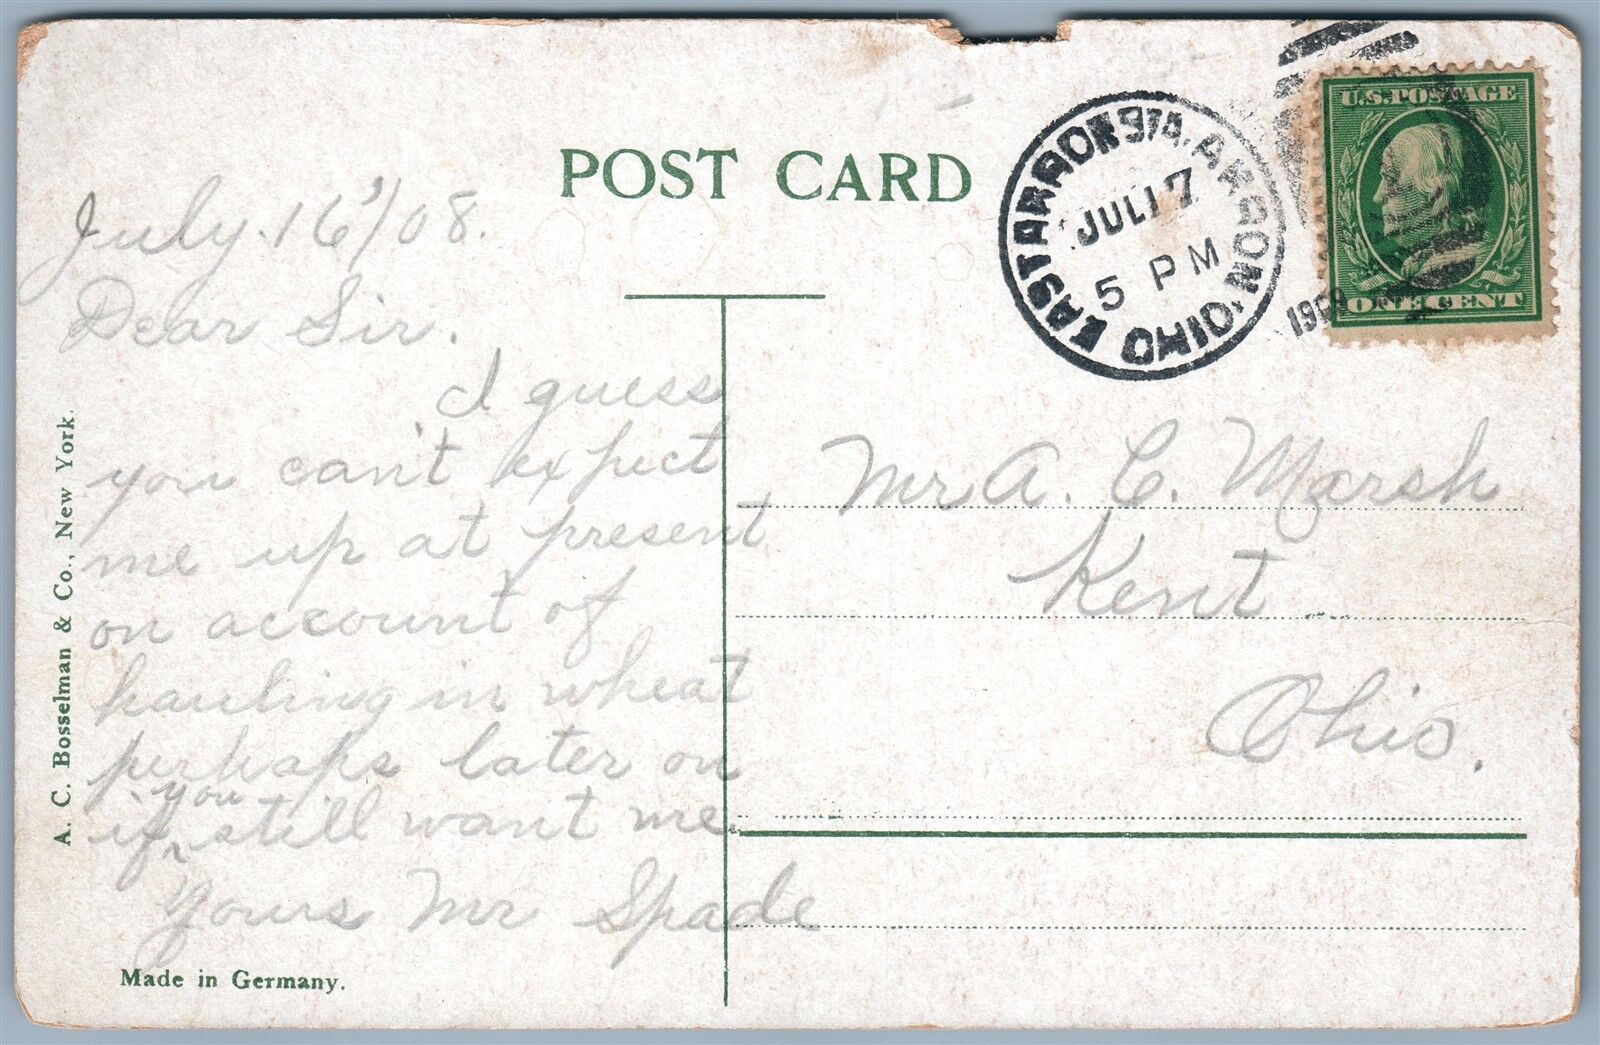 POST CARD
EAST AKRON STA. AKRON, OHIO.
JUL 17
5 PM
1909
U.S. POSTAGE
ONE CENT
July. 16'/08.
Dear Sir.
I guess
you can't expect
me up at present
on account of
hauling in wheat
perhaps later on
you
if ^ still want me.
Yours Mr Spade
Mr A. C. Marsh
Kent
Ohio.
A. C. Bosselman & Co., New York.
Made in Germany.